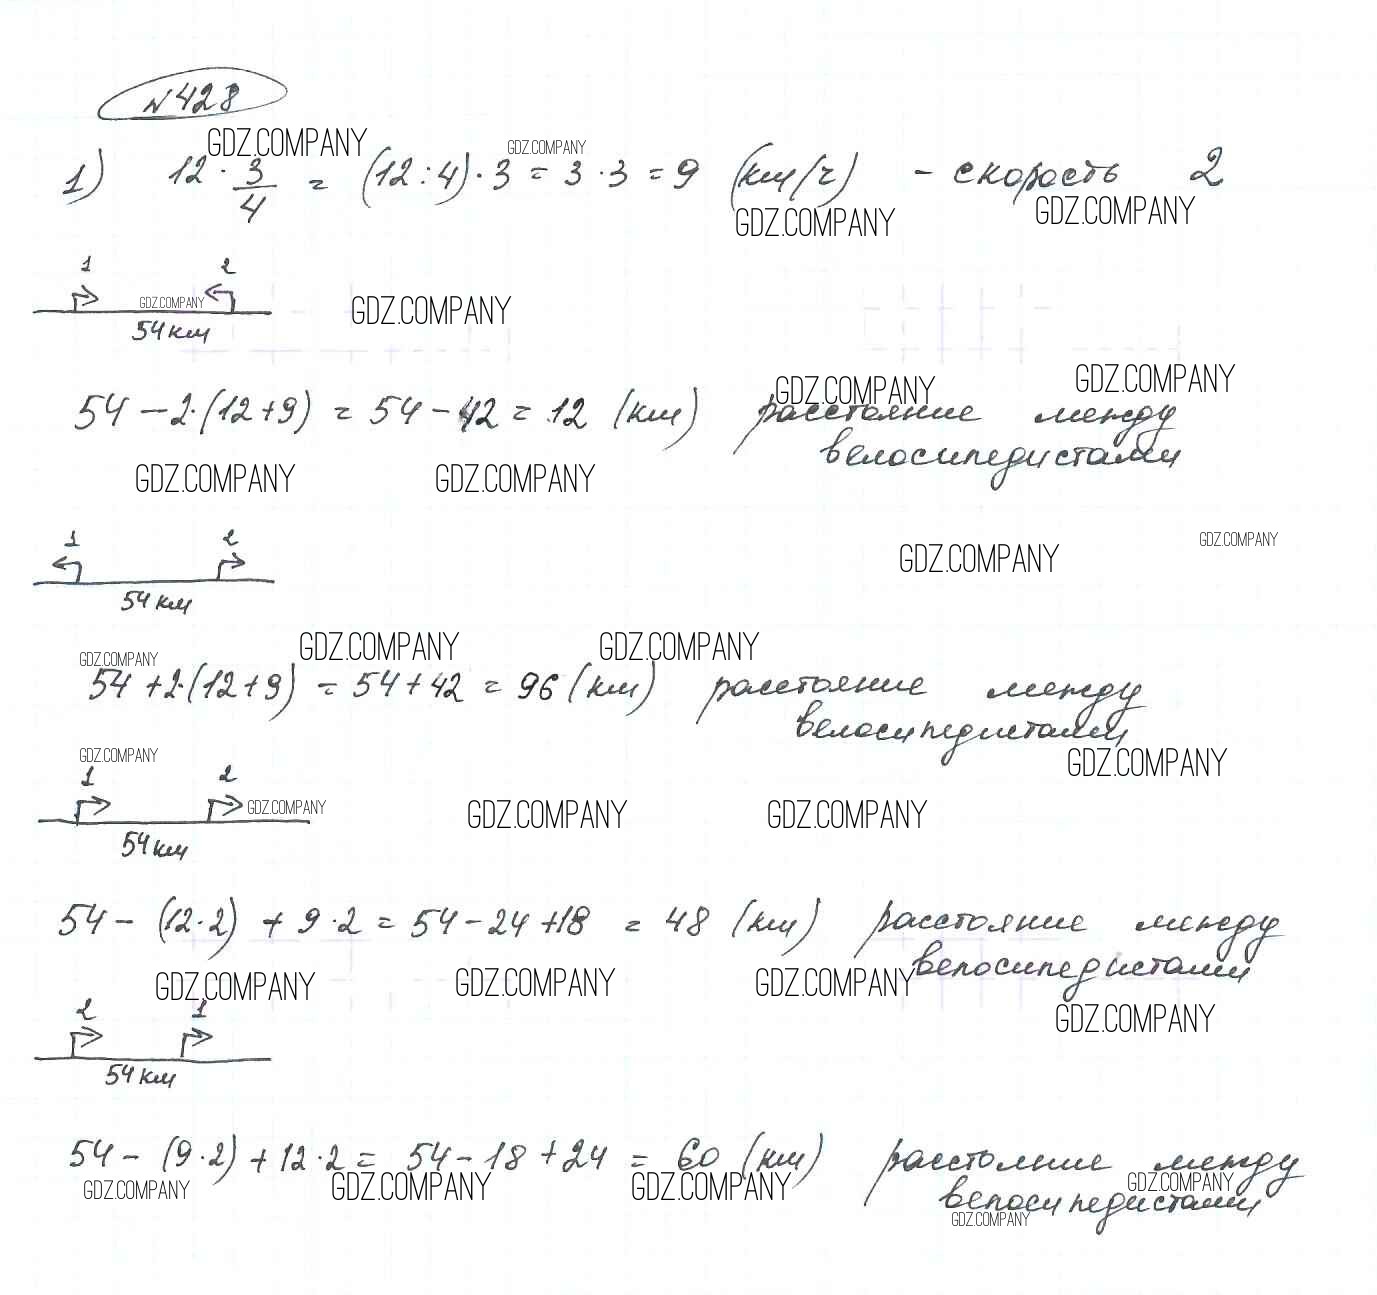 №428
GDZ.COMPANY GDZ.COMPANY
1) 12 · 3/4 = (12:4)·3 = 3·3 = 9 (км/ч) - скорость 2
GDZ.COMPANY GDZ.COMPANY
1 2
GDZ.COMPANY GDZ.COMPANY
54 км
GDZ.COMPANY GDZ.COMPANY
54 - 2·(12+9) = 54 - 42 = 12 (км) расстояние между
велосипедистами
GDZ.COMPANY GDZ.COMPANY
1 2
GDZ.COMPANY GDZ.COMPANY
54 км
GDZ.COMPANY GDZ.COMPANY GDZ.COMPANY
54 + 2·(12+9) = 54 + 42 = 96 (км) расстояние между
велосипедистами
GDZ.COMPANY GDZ.COMPANY
1 2
GDZ.COMPANY GDZ.COMPANY GDZ.COMPANY
54 км
54 - (12·2) + 9·2 = 54 - 24 + 18 = 48 (км) расстояние между
велосипедистами
GDZ.COMPANY GDZ.COMPANY GDZ.COMPANY
GDZ.COMPANY
2 1
54 км
54 - (9·2) + 12·2 = 54 - 18 + 24 = 60 (км) расстояние между
GDZ.COMPANY GDZ.COMPANY GDZ.COMPANY GDZ.COMPANY
велосипедистами
GDZ.COMPANY